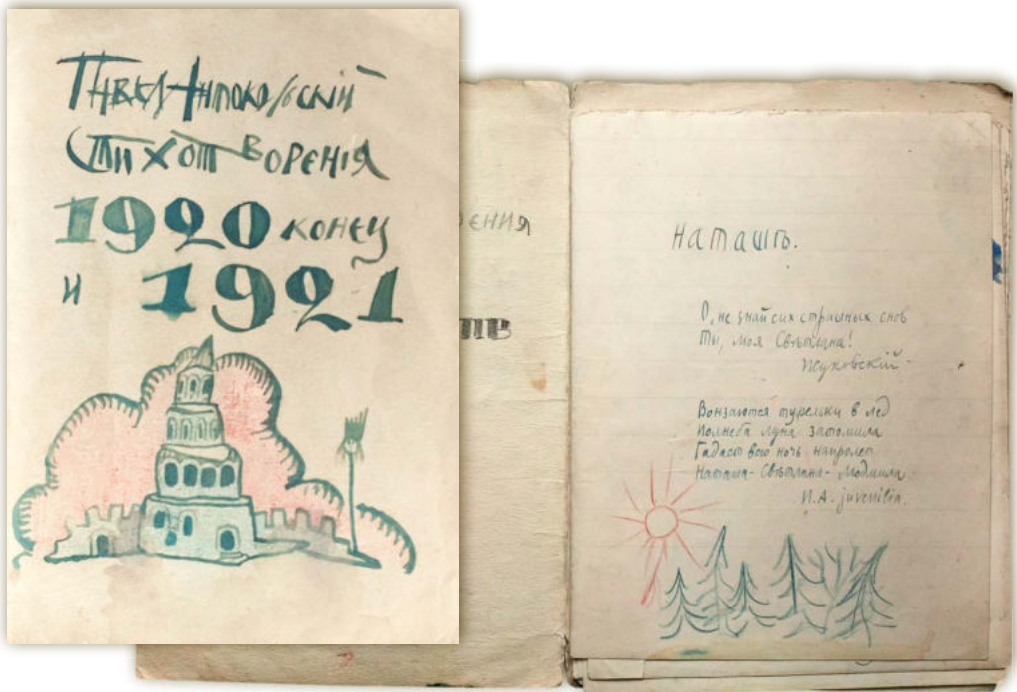 Павел Антокольскій
Стихотворенія
1920 конец
и 1921
ения
Наташѣ.
О, не знай сих страшных снов
Ты, моя Свѣтлана!
Жуковскій
Вонзаются турельки в лед
Полнеба луна затомила
Гадает всю ночь напролет
Наташа-Свѣтлана-Людмила.
П.А. juvenilia.